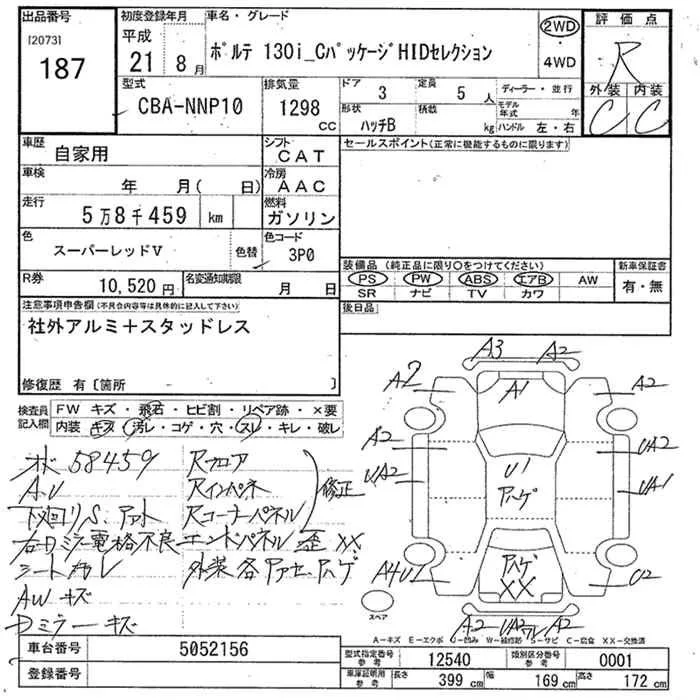 出品番号
[2073]
187
初度登録年月
平成
21年 8月
車名・グレード
ポルテ 130i_CパッケージHIDセレクション
2WD
・
4WD
評価点
R
外装 内装
C C
型式
CBA-NNP10
排気量
1298
CC
ドア
3
定員
5人
形状
ハッチB
積載
kg
ディーラー・並行
モデル年式 年
ハンドル 左・右
車歴
自家用
シフト
CAT
車検
年 月( 日)
冷房
AAC
走行
5万8千459 km
燃料
ガソリン
色
スーパーレッドV
色替
色コード
3P0
R券
10,520円
名変通知期限
月 日
セールスポイント(正常に機能するものに限ります)
装備品(純正品に限り○をつけてください)
PS PW ABS エアB AW
SR ナビ TV カワ
新車保証書
有・無
後日品
注意事項申告欄(不具合内容等は具体的に記入して下さい)
社外アルミ+スタッドレス
修復歴 有〔箇所 〕
検査員記入欄
FW キズ・飛石・ヒビ割・リペア跡・×要
内装 キズ・汚レ・コゲ・穴・スレ・キレ・破レ
58459
Rフロア
AU
Rインパネ
修正
下廻りS.
Rコーナーパネル
右Dミラー電格不良
エンドパネル 歪 XX
シート
外装各
AW キズ
Dミラーキズ
A3 A2
A2 A1 A2
A2 UA2
UA2 U1 UA1
アハゲ
A4U1 アハゲ U2
XX
A2
スペア
A-キズ E-エクボ U-凹み W-補修跡 S-サビ C-腐食 XX-交換済
車台番号
5052156
登録番号
型式指定番号
参考
12540
類別区分番号
参考
0001
車庫証明用
参考
長さ 399 cm
幅 169 cm
高さ 172 cm